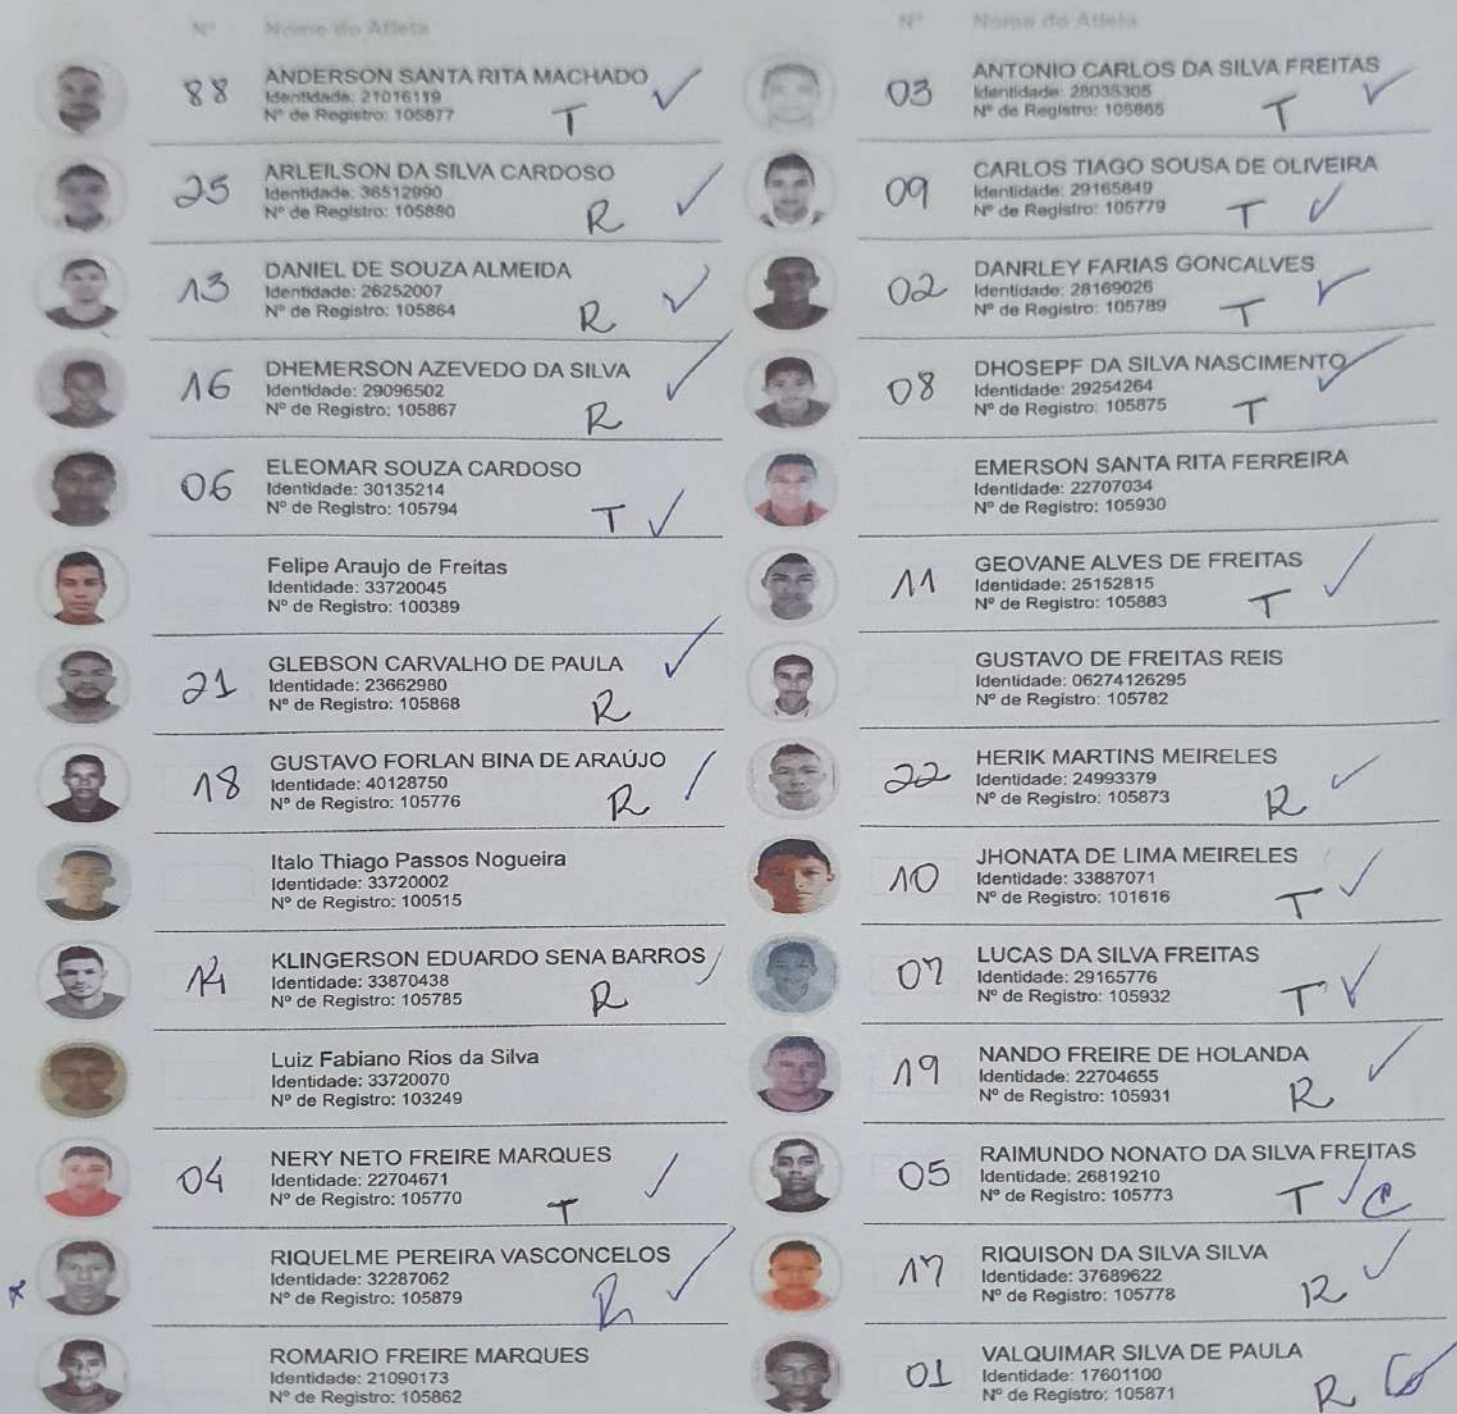 Nº Nome do Atleta
88 ANDERSON SANTA RITA MACHADO ✓
Identidade: 21016119
Nº de Registro: 105877 T
25 ARLEILSON DA SILVA CARDOSO ✓
Identidade: 36512990
Nº de Registro: 105880 R
13 DANIEL DE SOUZA ALMEIDA ✓
Identidade: 26252007
Nº de Registro: 105864 R
16 DHEMERSON AZEVEDO DA SILVA ✓
Identidade: 29096502
Nº de Registro: 105867 R
06 ELEOMAR SOUZA CARDOSO
Identidade: 30135214
Nº de Registro: 105794 T ✓
Felipe Araujo de Freitas
Identidade: 33720045
Nº de Registro: 100389
21 GLEBSON CARVALHO DE PAULA ✓
Identidade: 23662980
Nº de Registro: 105868 R
18 GUSTAVO FORLAN BINA DE ARAÚJO
Identidade: 40128750
Nº de Registro: 105776 R
Italo Thiago Passos Nogueira
Identidade: 33720002
Nº de Registro: 100515
14 KLINGERSON EDUARDO SENA BARROS
Identidade: 33870438
Nº de Registro: 105785 R
Luiz Fabiano Rios da Silva
Identidade: 33720070
Nº de Registro: 103249
04 NERY NETO FREIRE MARQUES ✓
Identidade: 22704671
Nº de Registro: 105770 T
RIQUELME PEREIRA VASCONCELOS ✓
Identidade: 32287062
Nº de Registro: 105879 R
ROMARIO FREIRE MARQUES
Identidade: 21090173
Nº de Registro: 105862
Nº Nome do Atleta
03 ANTONIO CARLOS DA SILVA FREITAS ✓
Identidade: 28035305
Nº de Registro: 105865 T
09 CARLOS TIAGO SOUSA DE OLIVEIRA
Identidade: 29165849
Nº de Registro: 105779 T ✓
02 DANRLEY FARIAS GONCALVES ✓
Identidade: 28169026
Nº de Registro: 105789 T
08 DHOSEPF DA SILVA NASCIMENTO ✓
Identidade: 29254264
Nº de Registro: 105875 T
EMERSON SANTA RITA FERREIRA
Identidade: 22707034
Nº de Registro: 105930
11 GEOVANE ALVES DE FREITAS ✓
Identidade: 25152815
Nº de Registro: 105883 T
GUSTAVO DE FREITAS REIS
Identidade: 06274126295
Nº de Registro: 105782
22 HERIK MARTINS MEIRELES ✓
Identidade: 24993379
Nº de Registro: 105873 R
10 JHONATA DE LIMA MEIRELES ✓
Identidade: 33887071
Nº de Registro: 101616 T
07 LUCAS DA SILVA FREITAS
Identidade: 29165776
Nº de Registro: 105932 T ✓
19 NANDO FREIRE DE HOLANDA ✓
Identidade: 22704655
Nº de Registro: 105931 R
05 RAIMUNDO NONATO DA SILVA FREITAS
Identidade: 26819210
Nº de Registro: 105773 T ✓ C
17 RIQUISON DA SILVA SILVA ✓
Identidade: 37689622
Nº de Registro: 105778 R
01 VALQUIMAR SILVA DE PAULA
Identidade: 17601100
Nº de Registro: 105871 R